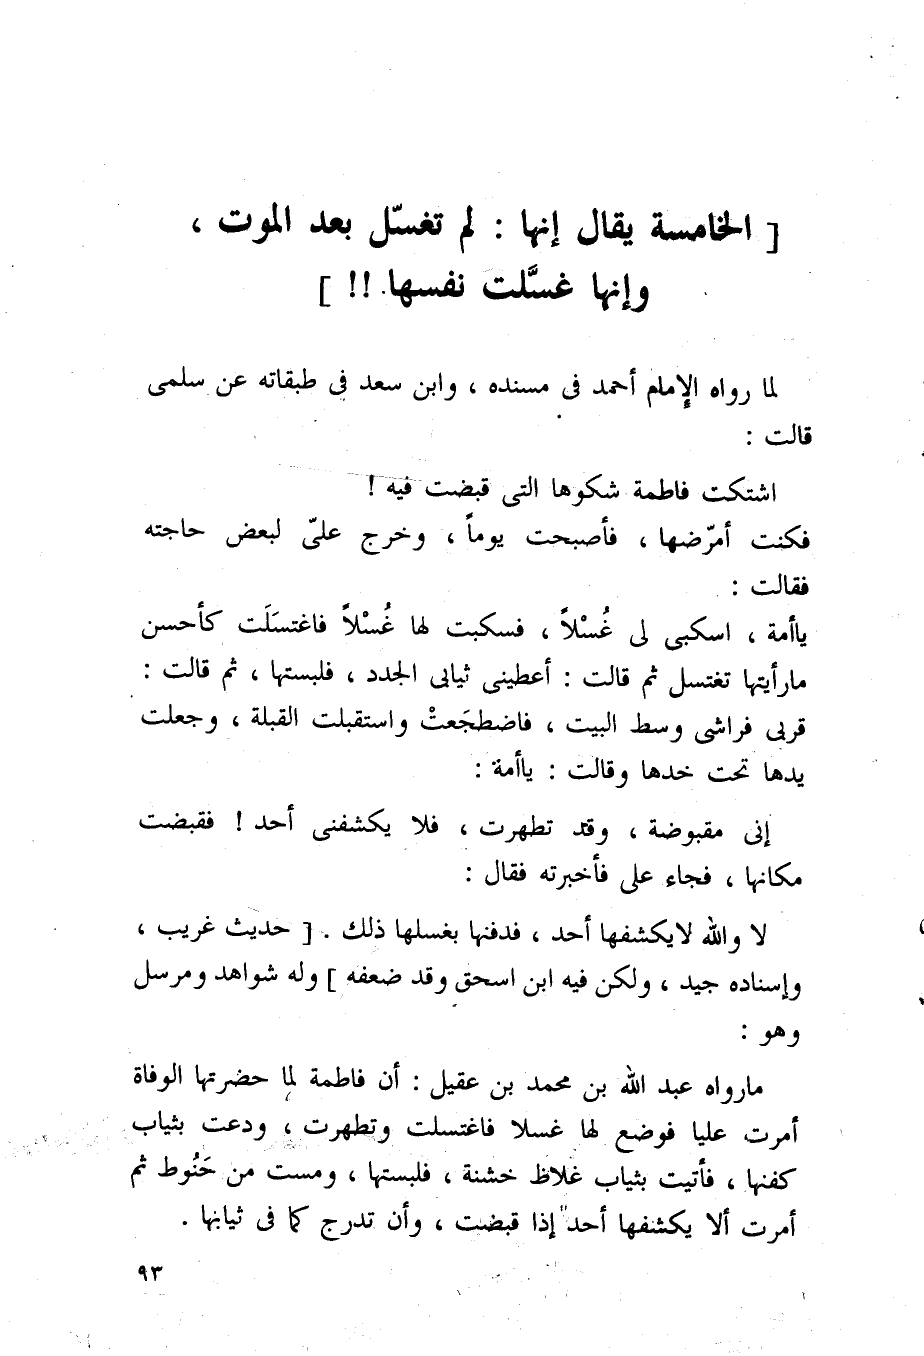 [ الخامسة يقال إنها : لم تغسّل بعد الموت ،
وإنها غسَّلت نفسها. !! ]
لما رواه الإمام أحمد فى مسنده ، وابن سعد فى طبقاته عن سلمى
قالت :
اشتكت فاطمة شكوها التى قبضت فيه !
فكنت أمرّضها ، فأصبحت يوماً ، وخرج علىّ لبعض حاجته
فقالت :
ياأمة ، اسكبى لى غُسْلاً ، فسكبت لها غُسْلاً فاغتسَلَت كأحسن
مارأيتها تغتسل ثم قالت : أعطينى ثيابى الجدد ، فلبستها ، ثم قالت :
قربى فراشى وسط البيت ، فاضطجَعتْ واستقبلت القبلة ، وجعلت
يدها تحت خدها وقالت : ياأمة :
إنى مقبوضة ، وقد تطهرت ، فلا يكشفنى أحد ! فقبضت
مكانها ، فجاء على فأخبرته فقال :
لا والله لايكشفها أحد ، فدفنها بغسلها ذلك . [ حديث غريب ،
وإسناده جيد ، ولكن فيه ابن اسحق وقد ضعفه ] وله شواهد ومرسل
وهو :
مارواه عبد الله بن محمد بن عقيل : أن فاطمة لما حضرتها الوفاة
أمرت عليا فوضع لها غسلا فاغتسلت وتطهرت ، ودعت بثياب
كفنها ، فأتيت بثياب غلاظ خشنة ، فلبستها ، ومست من حَنُوط ثم
أمرت ألا يكشفها أحد إذا قبضت ، وأن تدرج كما فى ثيابها .
٩٣